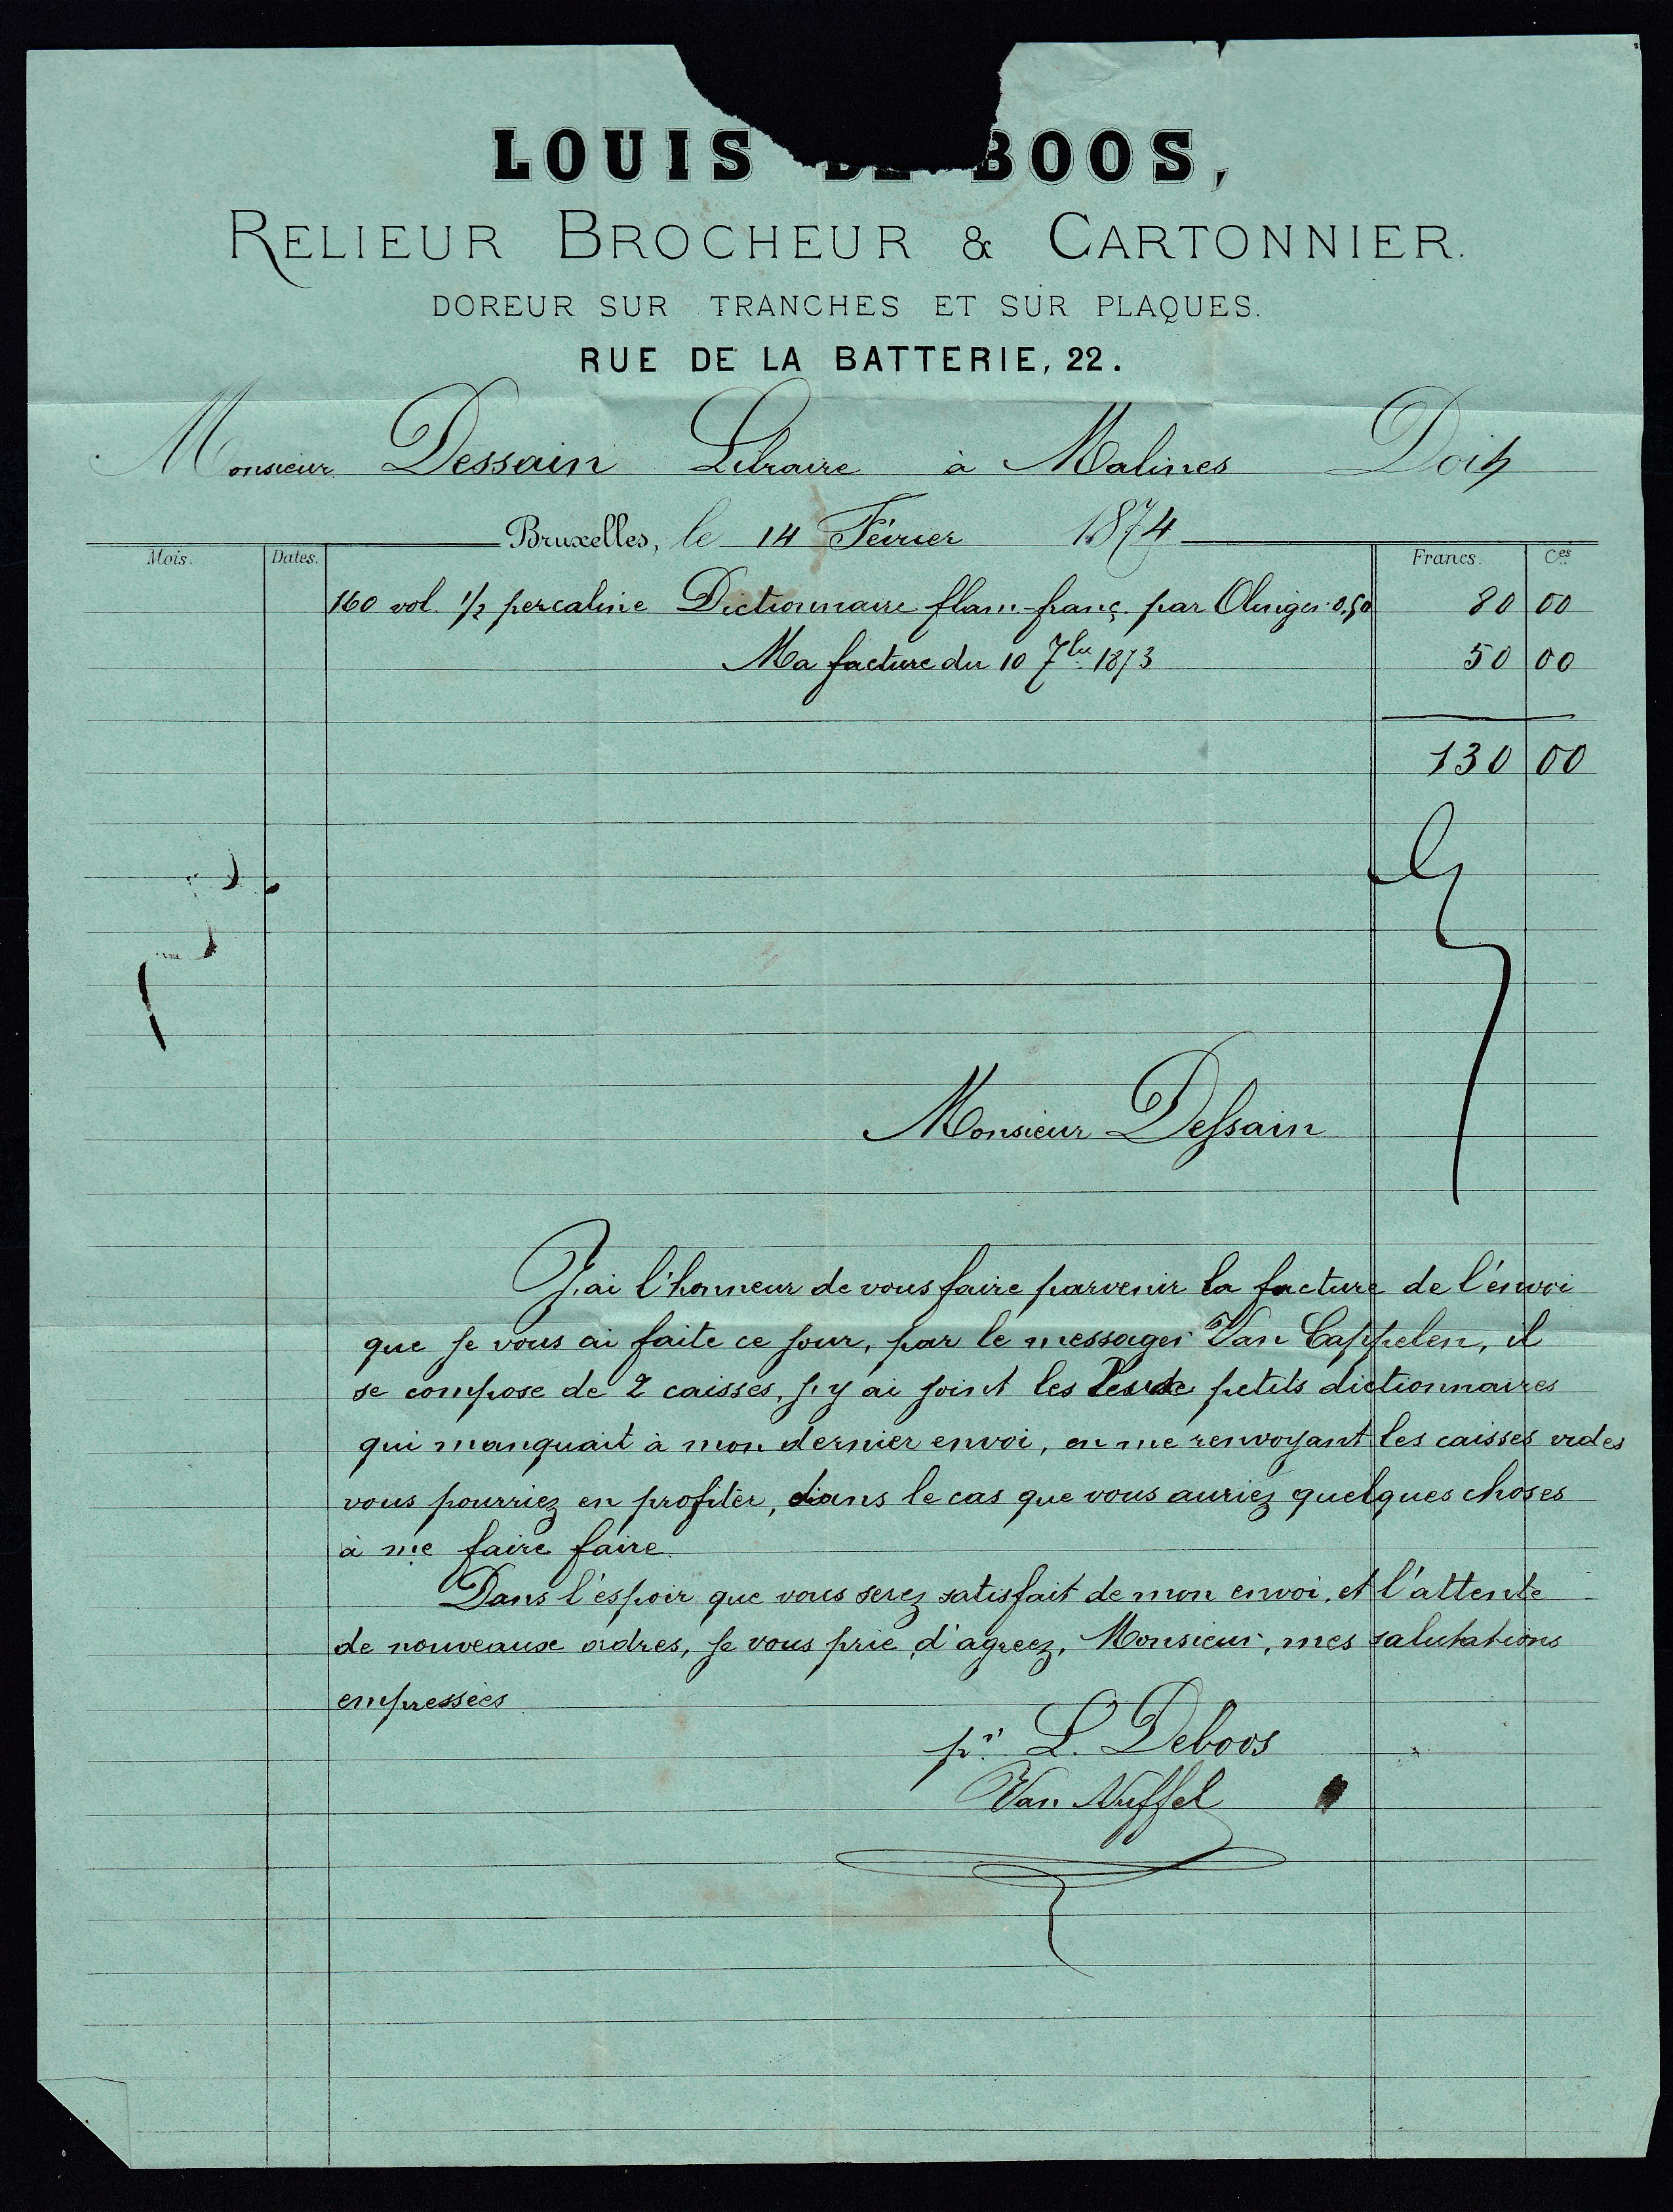 LOUIS DE BOOS,
RELIEUR BROCHEUR & CARTONNIER.
DOREUR SUR TRANCHES ET SUR PLAQUES.
RUE DE LA BATTERIE, 22.
Monsieur Dessain Libraire à Malines Doit
Bruxelles, le 14 Février 1874
Mois. Dates. Francs. Ces
160 vol. 1/2 percaline Dictionnaire flam-franç. par Olinger 0,50 80 00
Ma facture du 10 7bre 1873 50 00
130 00
Monsieur Dessain
J'ai l'honneur de vous faire parvenir la facture de l'envoi
que je vous ai faite ce jour, par le messager Van Cappelen, il
se compose de 2 caisses, j'y ai joint les petits dictionnaires
qui manquait à mon dernier envoi, en me renvoyant les caisses vides
vous pourriez en profiter, dans le cas que vous auriez quelques choses
à me faire faire.
Dans l'espoir que vous serez satisfait de mon envoi, et l'attente
de nouveaux ordres, je vous prie d'agreez, Monsieur, mes salutations
empressées
pr L. Deboos
Van Nuffel